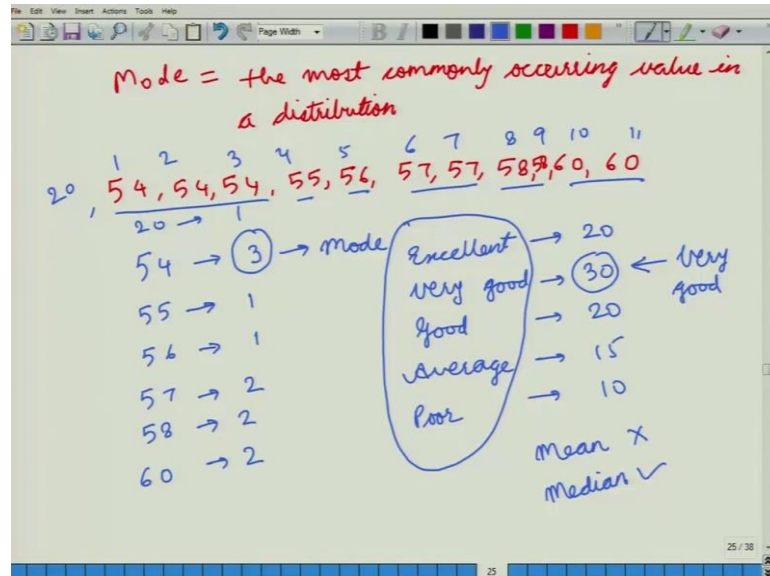 File Edit View Insert Actions Tools Help
Page Width
B I
Mode = the most commonly occurring value in
a distribution
1 2 3 4 5 6 7 8 9 10 11
20, 54, 54, 54, 55, 56, 57, 57, 58, 58, 60, 60
20 → 1
54 → 3 → Mode
55 → 1
56 → 1
57 → 2
58 → 2
60 → 2
Excellent → 20
very good → 30 ← very good
Good → 20
Average → 15
Poor → 10
Mean X
Median ✓
25 / 38
25